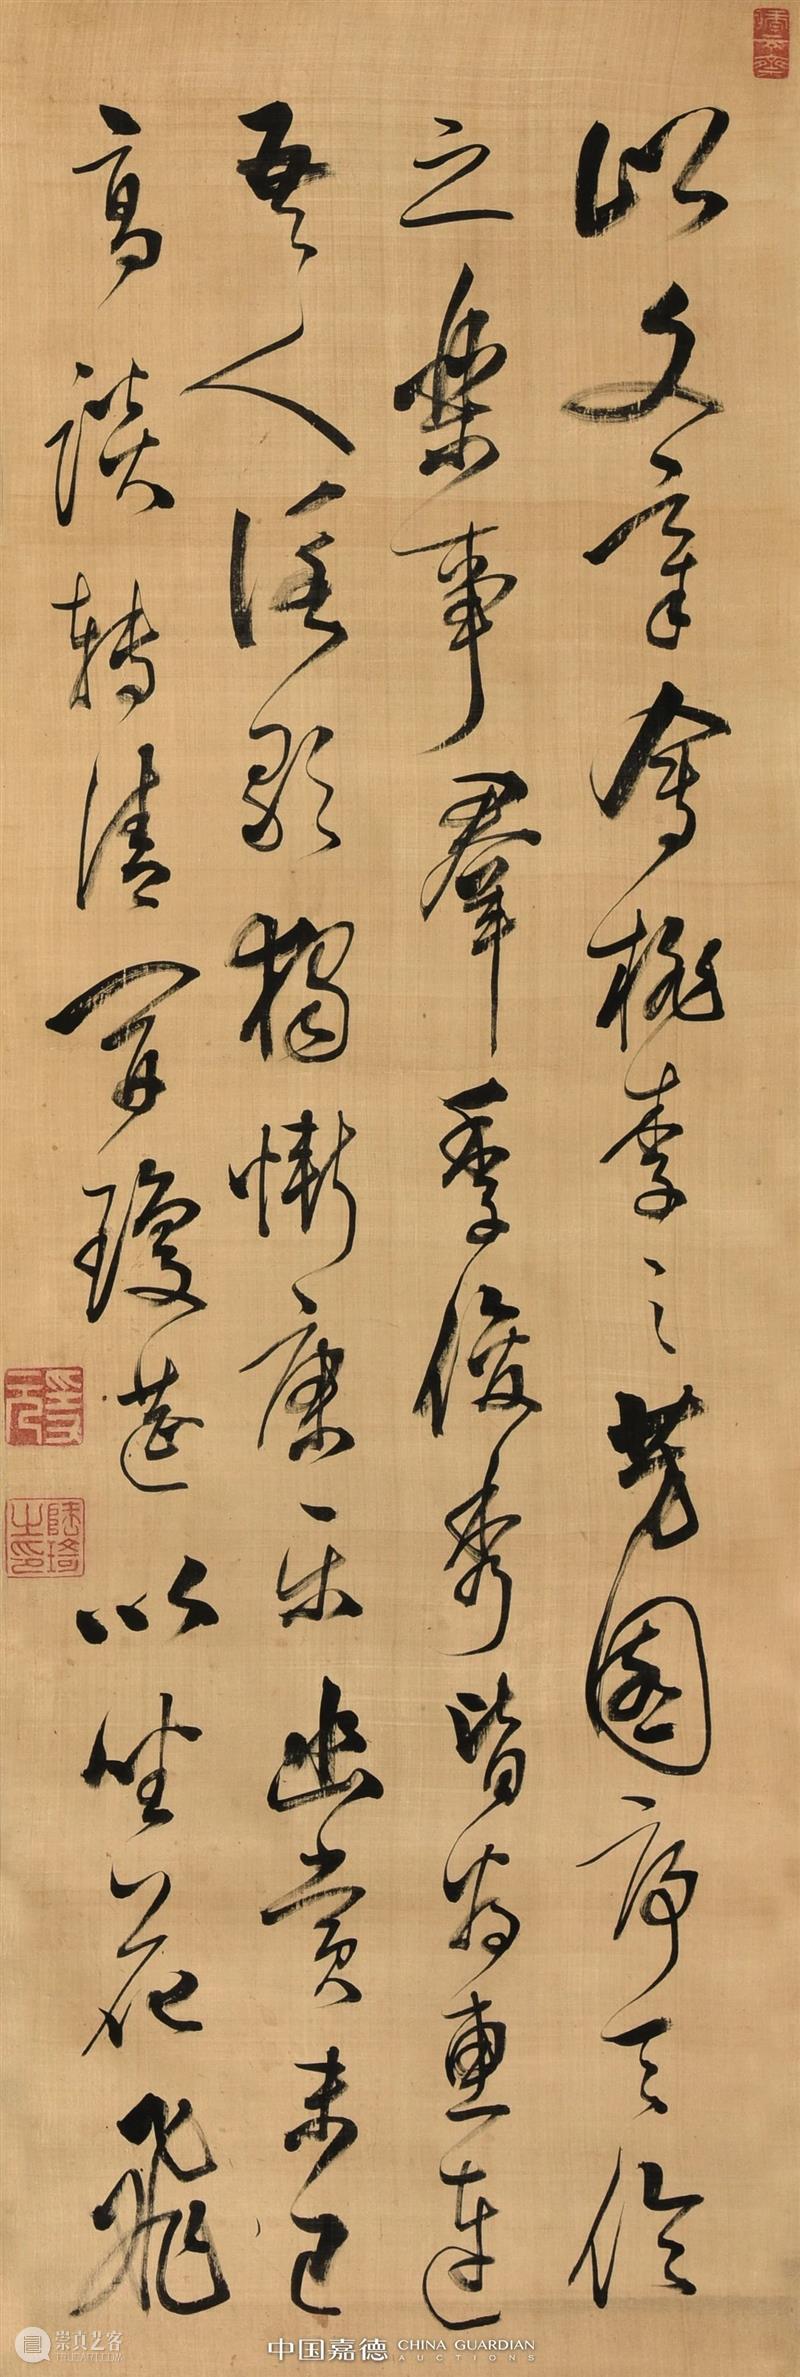 以文章會桃李之芳園序天倫
之樂事羣季俊秀皆為惠連
吾人詠歌獨慚康樂幽賞未已
高談轉清開瓊筵以坐花飛
中国嘉德 CHINA GUARDIAN
AUCTIONS
崇真艺客